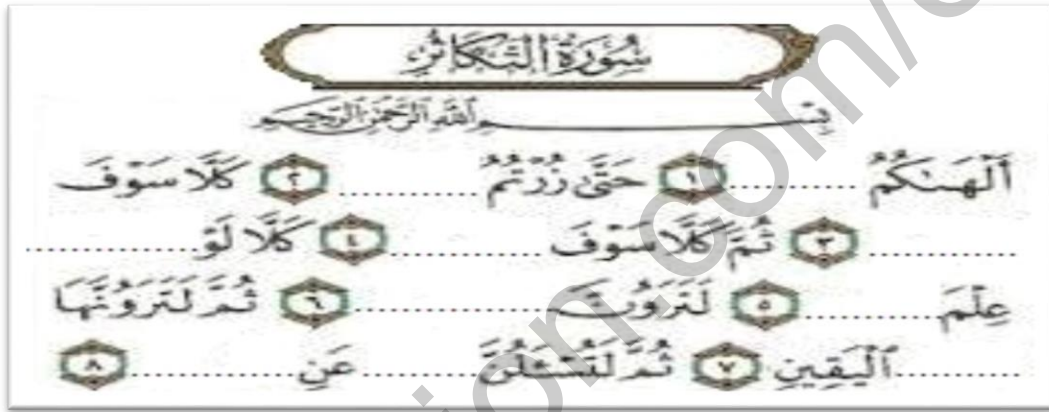 سُورَةُ التَّكَاثُرِ
بِسْمِ ٱللَّهِ ٱلرَّحْمَٰنِ ٱلرَّحِيمِ
أَلْهَىٰكُمُ .............. ١ حَتَّىٰ زُرْتُمُ .............. ٢ كَلَّا سَوْفَ
.............. ٣ ثُمَّ كَلَّا سَوْفَ .............. ٤ كَلَّا لَوْ ..............
عِلْمَ .............. ٥ لَتَرَوُنَّ .............. ٦ ثُمَّ لَتَرَوُنَّهَا
.............. ٱلْيَقِينِ ٧ ثُمَّ لَتُسْـَٔلُنَّ .............. عَنِ .............. ٨
ion.com/